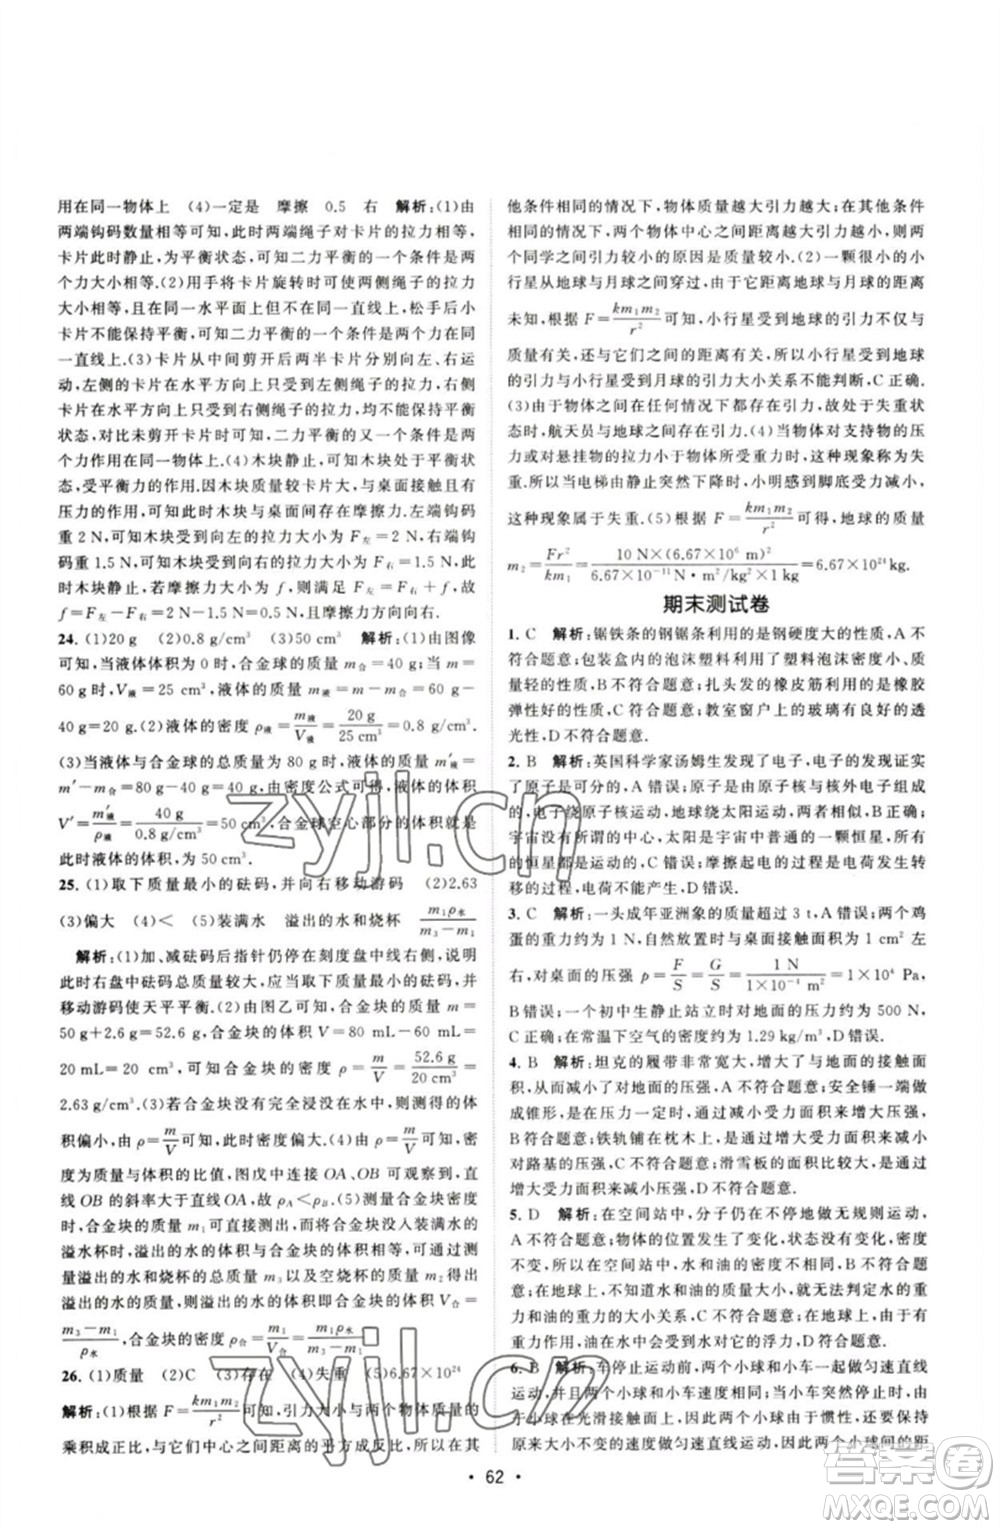 用在同一物体上 (4)一定是 摩擦 0.5 右 解析:(1)由
两端钩码数量相等可知,此时两端绳子对卡片的拉力相等,
卡片此时静止,为平衡状态,可知二力平衡的一个条件是两
个力大小相等.(2)用手将卡片旋转时可使两侧绳子的拉力
大小相等,且在同一水平面上不在同一直线上,松手后小
卡片不能保持平衡,可知二力平衡的一个条件是两个力在同
一直线上.(3)卡片从中间剪开后两半卡片分别向左、右运
动,左侧的卡片在水平方向上只受到左侧绳子的拉力,右侧
卡片在水平方向上只受到右侧绳子的拉力,均不能保持平衡
状态,对比未剪开卡片时的情况,可知二力平衡的一个条件是两
个力作用在同一物体上.(4)木块静止,可知木块处于平衡
状态,受平衡力的作用.因木块质量较卡片大,且在水平面上有
压力的作用,可知木块与水平面接触时存在摩擦力.左端钩码
重 2 N,可知木块受到向左的力大小为 F左=2 N,右端钩
码重 1.5 N,可知木块受到向右的力大小为 F右=1.5 N,此
时木块静止,若摩擦力大小为 f,则有 F左=f+F右,故
f=F左-F右=2 N-1.5 N=0.5 N,摩擦力方向向右.
24. (1)20 g (2)0.8 g/cm³ (3)50 cm³ 解析:(1)由图像
可知,当液体体积为 0 时,合金球的质量 m合=40 g;当 m=
60 g 时,V液=25 cm³,液体的质量 m液=m-m合=60 g-
40 g=20 g.(2)液体的密度 ρ液=m液/V液=20 g/25 cm³=0.8 g/cm³.
(3)当液体与合金球的总质量为 80 g 时,液体的质量 m′液=
m′-m合=80 g-40 g=40 g,由密度公式可得,液体的体积
V′=m′液/ρ液=40 g/0.8 g/cm³=50 cm³,合金球空心部分的体积就是
此时液体的体积,为 50 cm³.
25. (1)取下质量最小的砝码,并向右移动游码 (2)2.63
(3)偏大 (4)< (5)装满水 溢出的水和烧杯 m₁ρ水/m₃-m₁
解析:(1)加、减砝码后指针仍停在刻度盘中线右侧,说明
此时右盘中砝码质量较大,应取下质量最小的砝码,并向右
移动游码使天平平衡.(2)由图乙可知,合金块的质量 m=
50 g+2.6 g=52.6 g,合金块的体积 V=80 mL-60 mL=
20 mL=20 cm³,则合金块的密度 ρ=m/V=52.6 g/20 cm³=
2.63 g/cm³.(3)若合金块没有完全浸没在水中,则测得的体
积偏小,由 ρ=m/V 可知,密度偏大.(4)由 ρ=m/V 可知,密
度为质量与体积的比值,图戊中连接 OA、OB 可观察到,直
线 OB 的斜率大于直线 OA,故 ρA<ρB.(5)测量合金块密度
时,将合金块的质量 m₁可知,将合金块放入装满水的
溢水杯时,溢出水的体积等于合金块的体积,用烧杯承接
溢出的水和烧杯的总质量 m₃以及空烧杯的质量 m₂得出
溢出的水的质量,溢出的水的体积等于合金块的体积 V合=
m₃-m₁/ρ水,合金块的密度 ρ合=m₁/V合=m₁ρ水/m₃-m₁.
26. (1)质量 (2)C (3)存在 (4)失重 (5)6.67×10²⁴
解析:(1)根据 F=km₁m₂/r² 可知,引力大小与两物体质量的
乘积成正比,与它们中心之间距离的平方成反比,所以在其
他条件相同的情况下,物体质量越大引力越大;在其他条件
相同的情况下,两个物体中心之间距离越大引力越小,所以
两个同学之间引力较小的原因是质量较小.(2)一颗小行
星从地球与月球之间穿过,由于其距离地球与月球的距离
未知,根据 F=km₁m₂/r² 可知,小行星受到地球的引力不仅与
质量有关,还与它们中心之间的距离有关,所以小行星与地球
的引力与小行星与月球的引力大小关系不能判断,C 正确.
(3)由于物体之间在任何情况下都存在引力,故处于失重
状态时,航天员与地球之间存在引力.(4)物体对支持物的压
力或对悬挂物的拉力小于物体所受重力时,这种现象称为失
重.当电梯由静止向下运动时,人感觉对脚底压力减小,
这种现象属于失重.(5)根据 F=km₁m₂/r² 可得,地球的质量
m₂=Fr²/km₁=10 N×(6.67×10⁶ m)²/6.67×10⁻¹¹ N·m²/kg²×1 kg=6.67×10²⁴ kg.
期末测试卷
1. C 解析:锯铁条的钢锯条利用的是钢硬度大的性质,A 不
符合题意;包装盒内的泡沫塑料利用了塑料泡沫密度小
的性质,B 不符合题意;扎头发的橡皮筋利用的是橡胶
弹性好的性质,C 符合题意;教室窗户上的玻璃有良好的透
光性,D 不符合题意.
2. B 解析:英国科学家汤姆生发现了电子,电子的发现证实
了原子是可分的,A 错误;原子由原子核与核外电子组成,
其中,电子绕原子核运动,地球绕太阳运动,两者相似,B 正确;
宇宙没有所谓的中心,太阳是宇宙中普通的一颗恒星,所
有恒星都是运动的,C 错误;摩擦起电的过程是电荷发生转
移的过程,电荷不能产生,D 错误.
3. C 解析:一头成年亚洲象的质量超过 3 t,A 错误;两个鸡
蛋的重力为 1 N,自来水笔尖与桌面的接触面积为 1 cm² 左
右,对桌面的压强 p=F/S=G/S=1 N/1×10⁻⁴ m²=1×10⁴ Pa,
B 错误;一个初中生静止站立时对地面的压力约为 500 N,
C 正确;在常温下空气的密度约为 1.29 kg/m³,D 错误.
4. B 解析:坦克的履带非常宽大,增大了与地面的接触面
积,减小了对地面的压强,A 不符合题意;安全锤一端做
成锥形,是在压力一定时,通过减小受力面积来增大压强,B
符合题意;铁轨铺在枕木上,增大了受力面积从而减小对
路基的压强,C 不符合题意;滑雪板的面积比较大,增大受力
面积从而减小压强,D 不符合题意.
5. D 解析:在空间站中,分子仍在不停地做无规则运动,
A 不符合题意;物体的位置发生了变化,状态没有变化,
B 不符合题意;在空间站中,水和油的质量不变,密度
不变,C 不符合题意;在地球上,由于
重力作用,油在水中会受到水对它的浮力,D 符合题意.
6. B 解析:车停止运动前,两个小球和小车一起做匀速直线
运动,则两个小球和小车速度相同,当小车突然停止运动,
由于水平面光滑,两个小球由于惯性保持原来的
大小不变的速度做匀速直线运动,所以两个小球间的距
62
zyjl.cn
zyjl.cn
答案圈
MXQE.COM